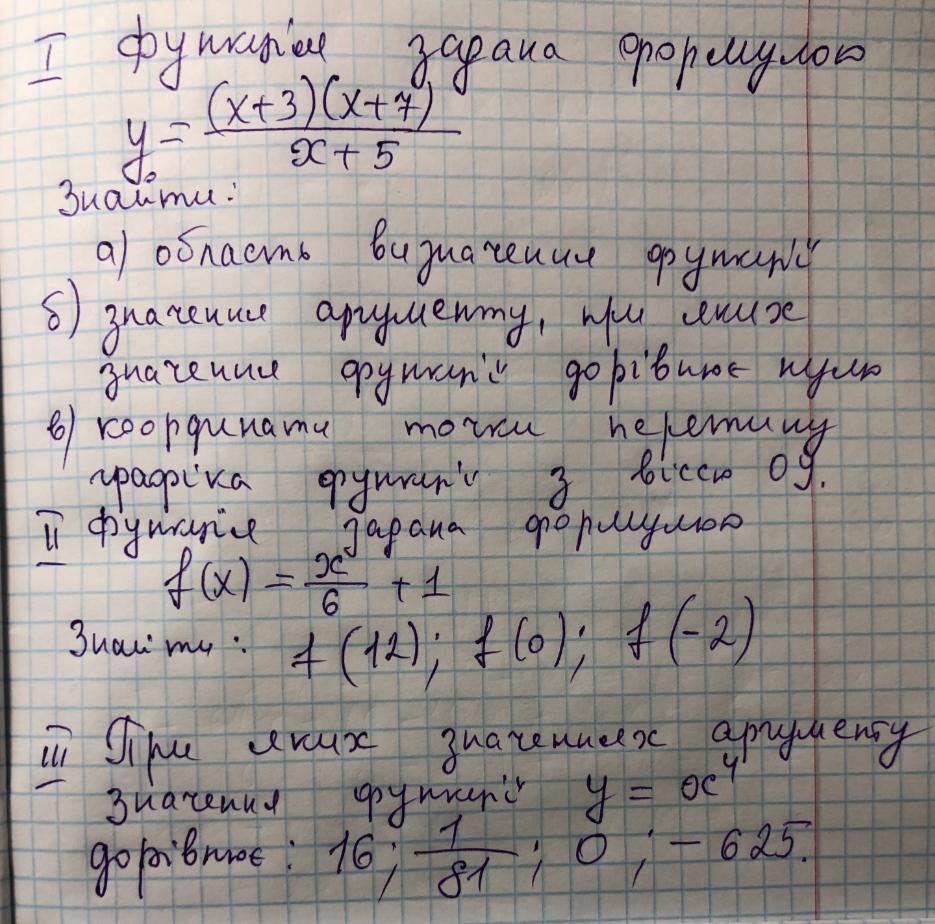 I функція задана формулою
y = (x+3)(x+7) / x+5
Знайти:
а) область визначення функції
б) значення аргументу, при яких
значення функції дорівнює нулю
в) координати точки перетину
графіка функції з віссю Oy.
II функція задана формулою
f(x) = x/6 + 1
Знайти: f(12); f(0); f(-2)
III При яких значеннях аргументу
значення функції y = x⁴
дорівнює: 16; 1/81; 0; -625.